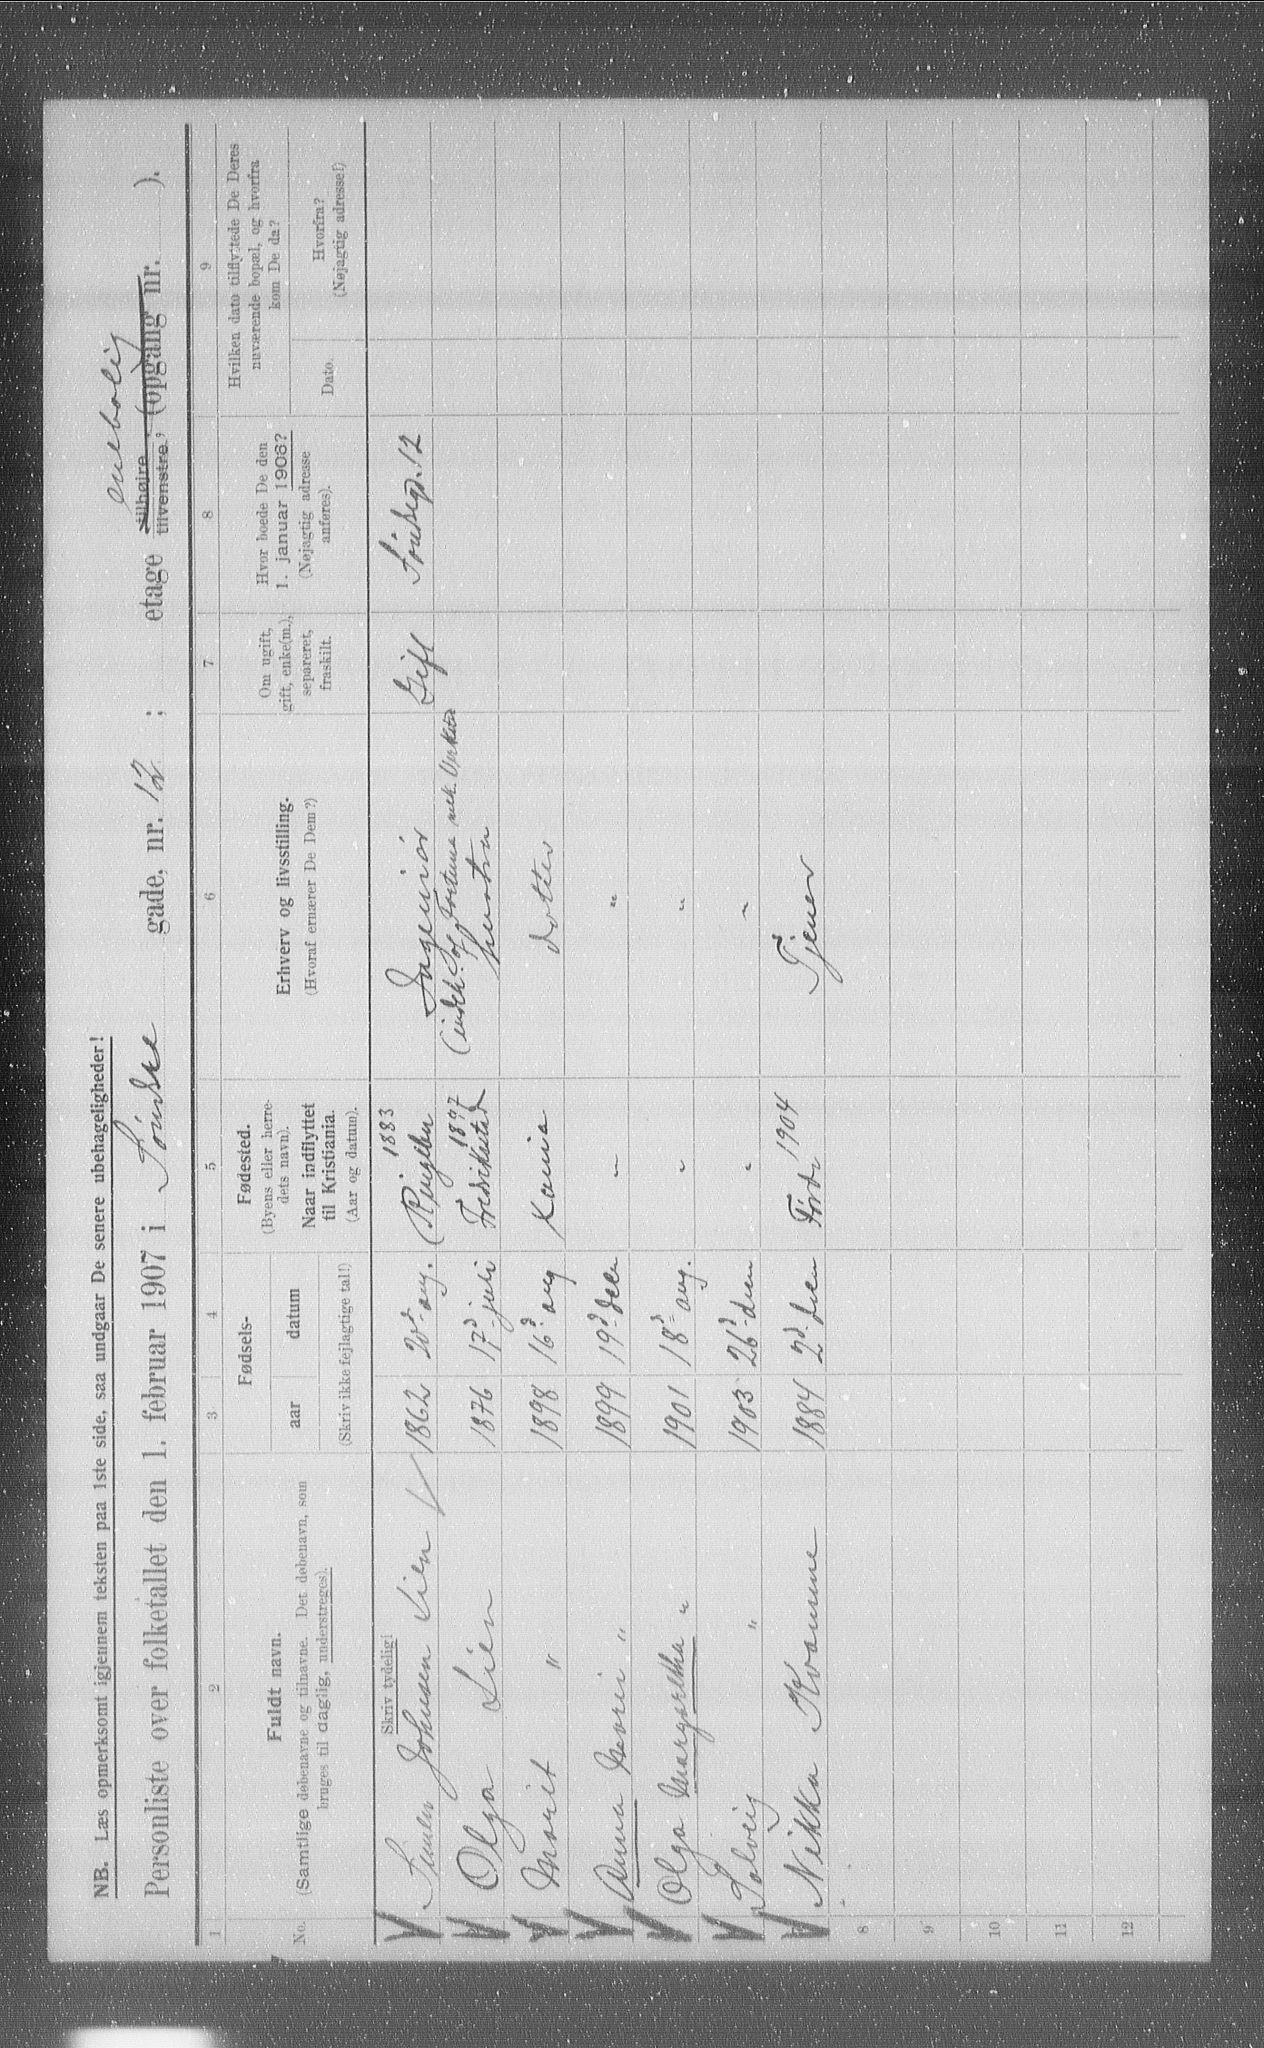 NB. Læs opmerksomt igjennem teksten paa 1ste side, saa undgaar De senere ubehageligheder!
enebolig
Personliste over folketallet den 1. februar 1907 i gade, nr. 12; etage tilhøire tilvenstre, (opgang nr. ).
1 2 3 4 5 6 7 8 9
No.
Fuldt navn.
(Samtlige døbenavne og tilnavne. Det døbenavn, som
bruges til daglig, understreges).
Fødsels-
aar datum
(Skriv ikke fejlagtige tal!)
Fødested.
(Byens eller herre-
dets navn).
Naar indflyttet
til Kristiania.
(Aar og datum).
Erhverv og livsstilling.
(Hvoraf ernærer De Dem?)
Om ugift,
gift, enke(m.),
separeret,
fraskilt.
Hvor boede De den
1. januar 1906?
(Nøjagtig adresse
anføres).
Hvilken dato tilflyttede De Deres
nuværende bopæl, og hvorfra
kom De da?
Dato.
Hvorfra?
(Nøjagtig adresse!)
Skriv tydelig!
Johnsen Lien 1862 20d aug. Ringebu 1883 Ingeniør Gift 12
Olga Lien 1876 17d juli Fredrikstad 1897 hustru
Marit " 1898 16d aug Kania dotter
Anna Marie " 1899 19d decm " "
Olga Margaretha " 1901 18d aug. " "
Solveig " 1903 26d decm " "
Nikka Kvamme 1884 2d decm Førde 1904 Tjener
8
9
10
11
12